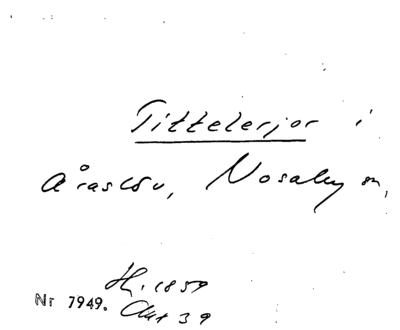 Tittelerjor i
Åraslöv, Nosaby sn,
H. 1859
Nr 7949. Okt 39